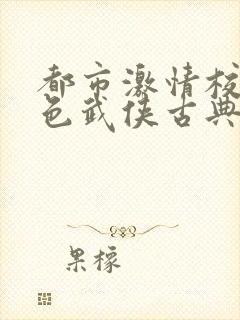 都市激情校
色武侠古典
果檬